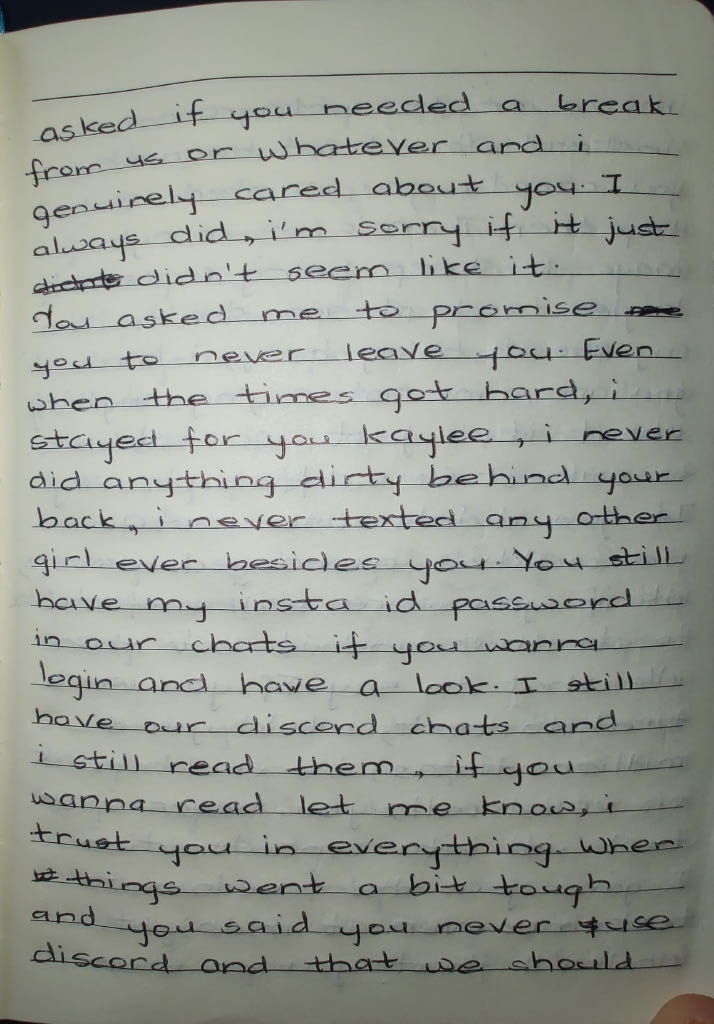 asked if you needed a break
from us or whatever and i
genuinely cared about you. I
always did, i'm sorry if it just
didn't seem like it.
You asked me to promise
you to never leave you. Even
when the times got hard, i
stayed for you kaylee, i never
did anything dirty behind your
back, i never texted any other
girl ever besides you. You still
have my insta id password
in our chats if you wanna
login and have a look. I still
have our discord chats and
i still read them, if you
wanna read let me know, i
trust you in everything. When
things went a bit tough
and you said you never use
discord and that we should